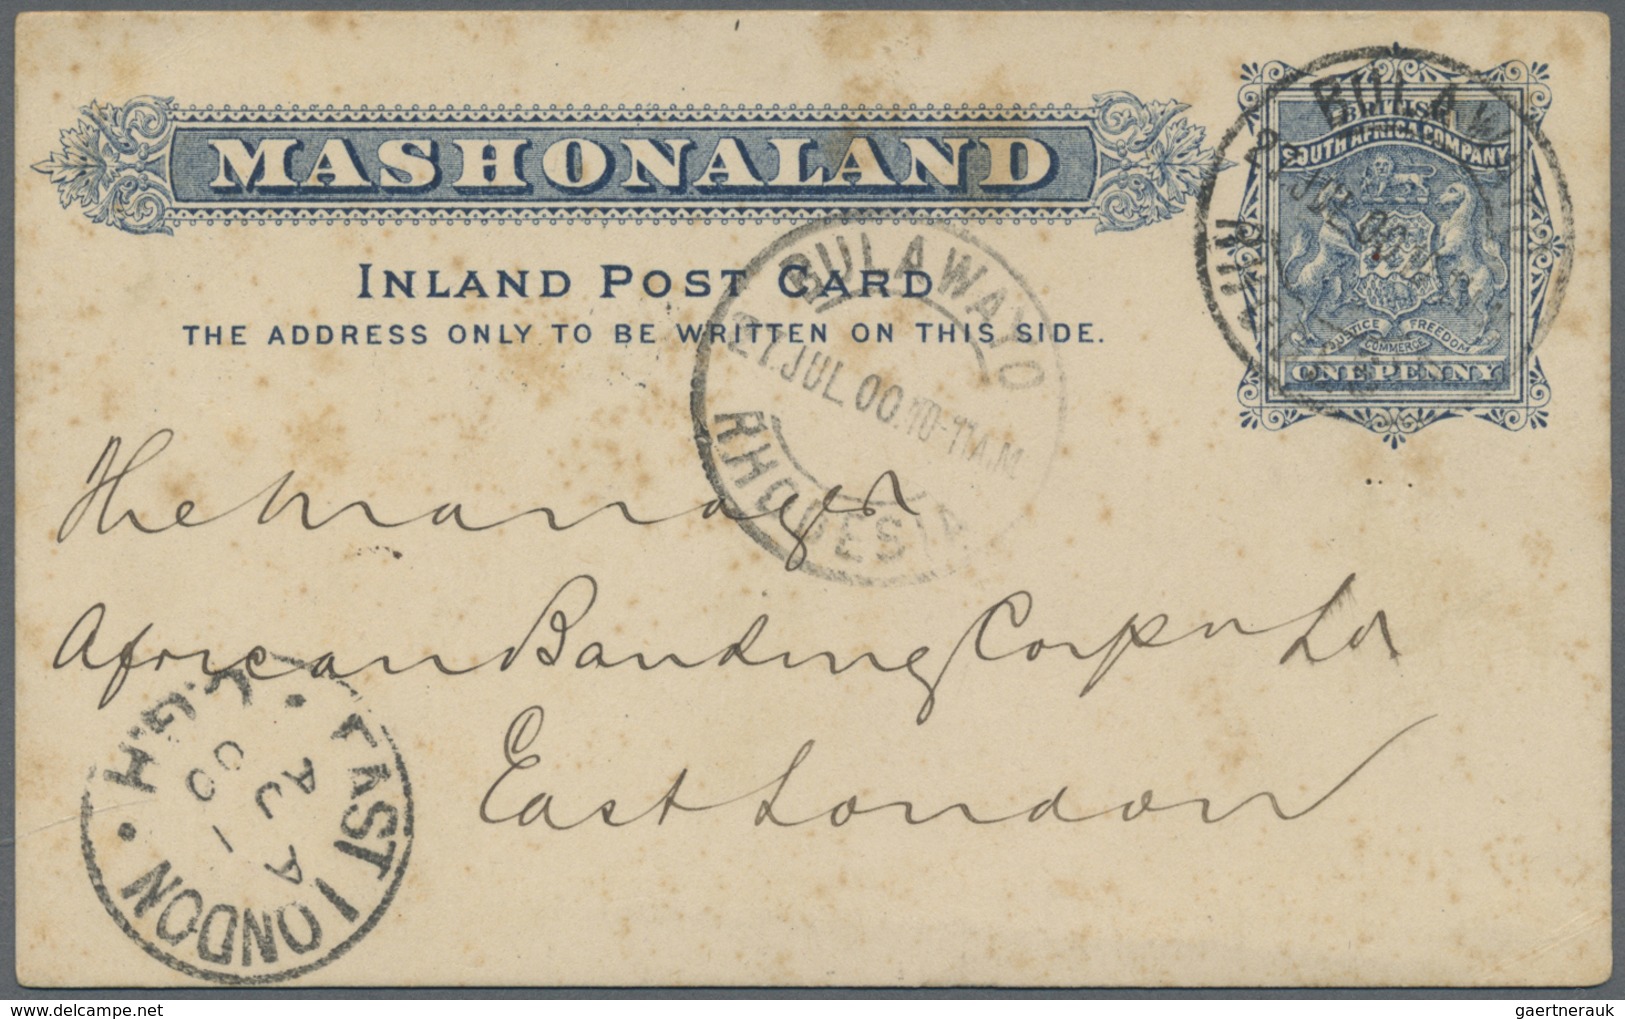 MASHONALAND
INLAND POST CARD
THE ADDRESS ONLY TO BE WRITTEN ON THIS SIDE.
BRITISH
SOUTH AFRICA COMPANY
JUSTICE FREEDOM
COMMERCE
ONE PENNY
BULAWAYO
RHODESIA
BULAWAYO
27.JUL.00.10-11A.M
RHODESIA
The Manager
African Banking Corpn Ld
East London
EAST LONDON
C.G.H.
A
AU 1
00
gaertnerauk
delcampe.net